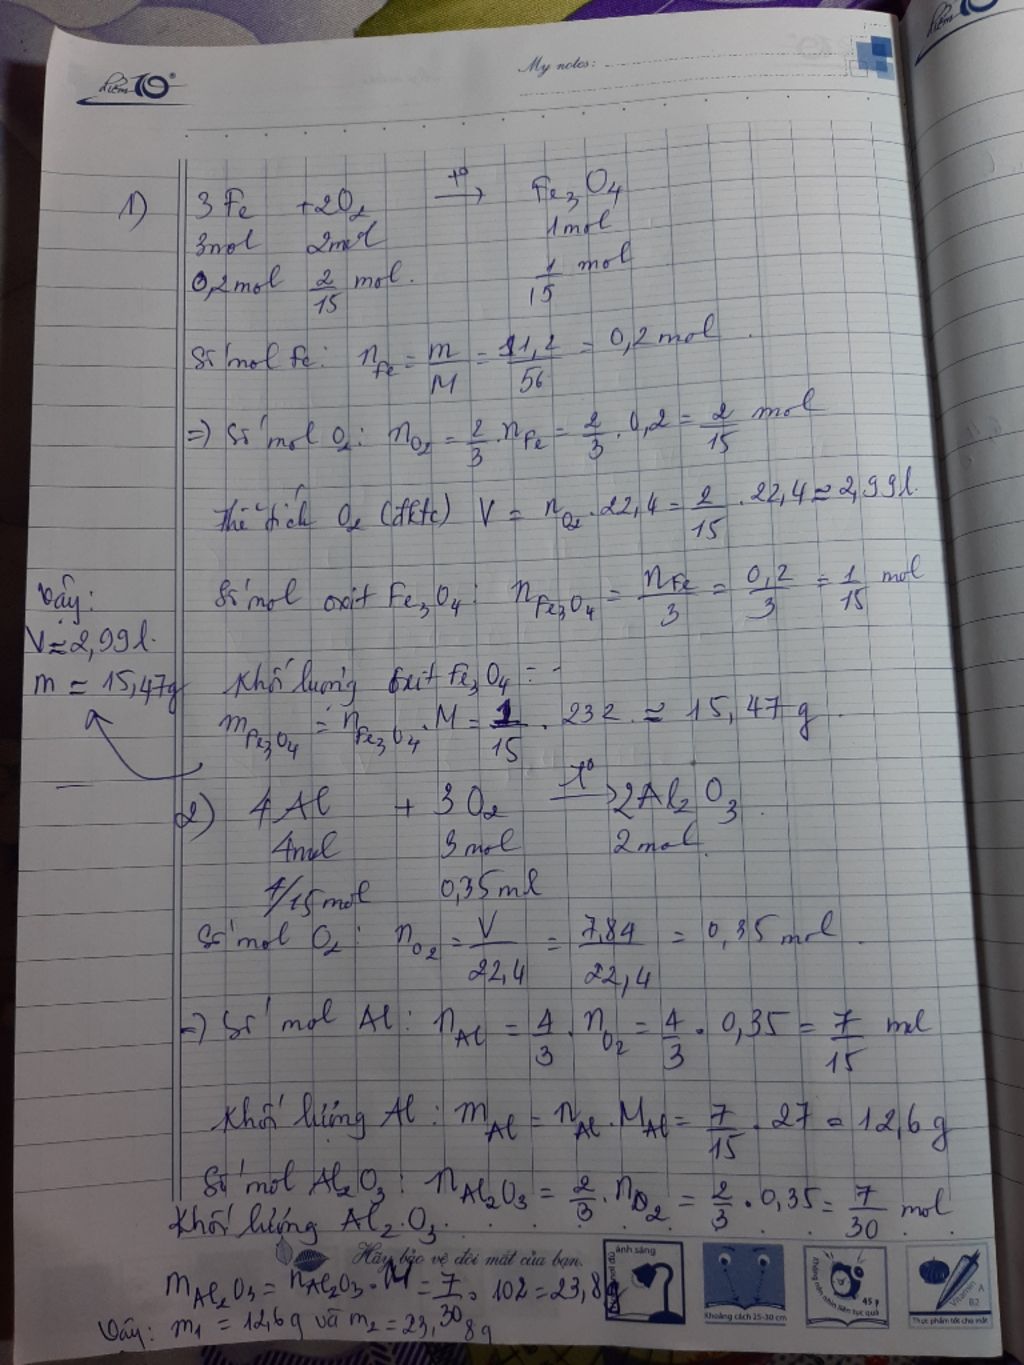 điểm 10
My notes:
1) 3Fe + 2O₂ t° → Fe₃O₄
3mol 2mol 1mol
0,2mol 2/15 mol. 1/15 mol
Số mol Fe: n_Fe = m/M = 11,2/56 = 0,2 mol.
=> Số mol O₂: n_O₂ = 2/3 . n_Fe = 2/3 . 0,2 = 2/15 mol
Thể tích O₂ (đktc) V = n_O₂ . 22,4 = 2/15 . 22,4 ≈ 2,99l.
Số mol oxit Fe₃O₄: n_Fe₃O₄ = n_Fe/3 = 0,2/3 = 1/15 mol
Vậy:
V ≈ 2,99l.
m ≈ 15,47g
Khối lượng oxit Fe₃O₄ :
m_Fe₃O₄ = n_Fe₃O₄ . M = 1/15 . 232 ≈ 15,47 g.
2) 4Al + 3O₂ t° → 2Al₂O₃.
4mol 3mol 2mol.
7/15 mol 0,35 ml
Số mol O₂: n_O₂ = V/22,4 = 7,84/22,4 = 0,35 mol.
=> Số mol Al: n_Al = 4/3 . n_O₂ = 4/3 . 0,35 = 7/15 mol
Khối lượng Al: m_Al = n_Al . M_Al = 7/15 . 27 = 12,6 g
Số mol Al₂O₃: n_Al₂O₃ = 2/3 . n_O₂ = 2/3 . 0,35 = 7/30 mol
Khối lượng Al₂O₃
Hãy bảo vệ đôi mắt của bạn.
m_Al₂O₃ = n_Al₂O₃ . M = 7/30 . 102 = 23,8g
Vậy: m₁ = 12,6g và m₂ = 23,8g
ánh sáng
Khoảng cách 25-30 cm
45 p
Vitamin A B2
Thực phẩm tốt cho mắt